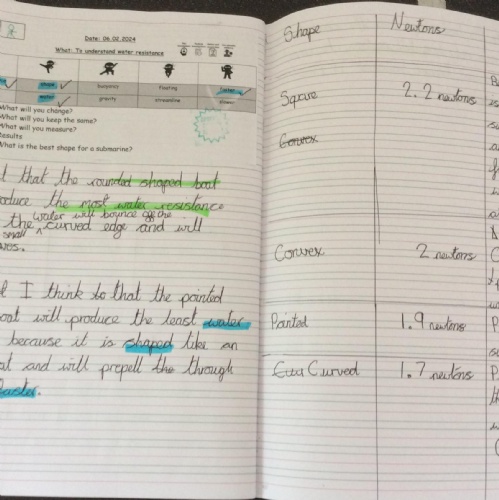 Date: 06.02.2024
What: To understand water resistance
shape
buoyancy
floating
faster
water
gravity
streamline
slower
What will you change?
What will you keep the same?
What will you measure?
Results
What is the best shape for a submarine?
that the rounded shaped boat
the most water resistance
water will bounce off the
the curved edge and will
small
I think so that the pointed
will produce the least water
because it is shaped like an
and will propell the through
faster.
Shape
Newtons
Square
2.2 newtons
Convex
Convex
2 newtons
Pointed
1.9 newtons
Curved
1.7 newtons